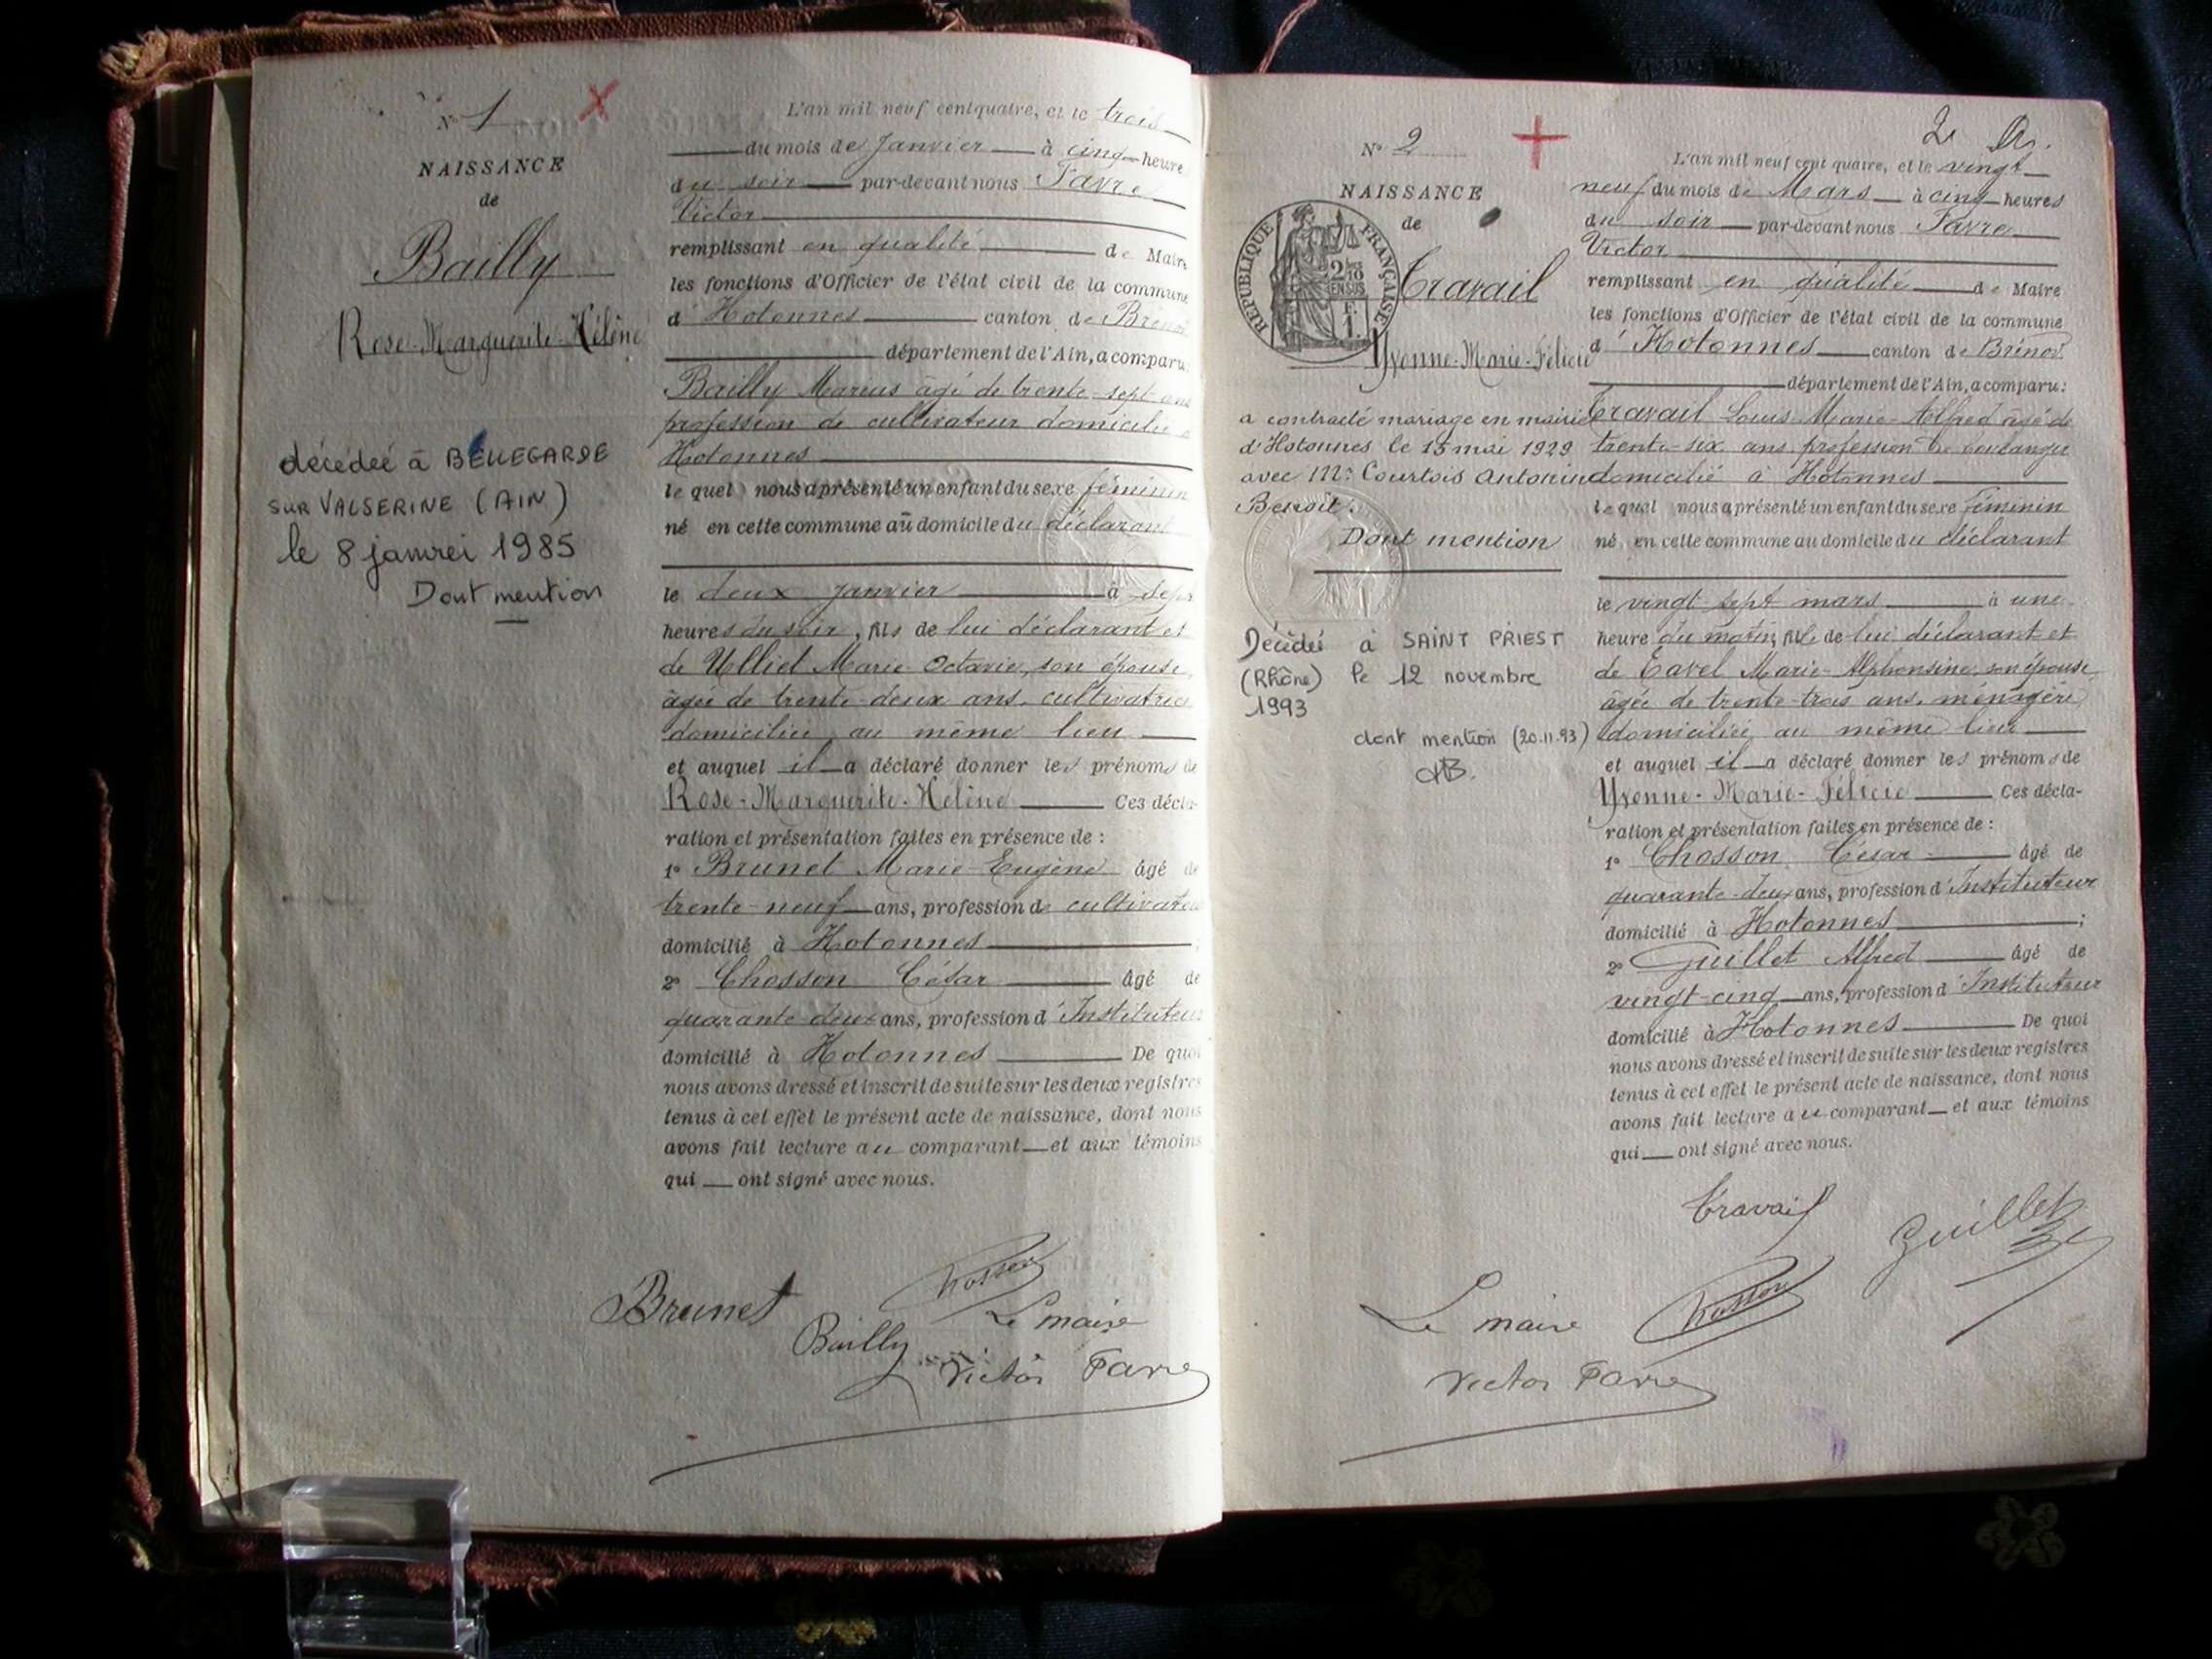 N° 1
NAISSANCE
de
Bailly
Rose-Marguerite-Hélène
décédée à BELLEGARDE
SUR VALSERINE (AIN)
le 8 janvier 1985
Dont mention
L'an mil neuf cent quatre, et le trois
du mois de Janvier à cinq heure
du soir par-devant nous Favre
Victor
remplissant en qualité de Maire
les fonctions d'Officier de l'état civil de la commune
d'Hotonnes canton de Brénod
département de l'Ain, a comparu:
Bailly Marius âgé de trente-sept ans
profession de cultivateur domicilié à
Hotonnes
lequel nous a présenté un enfant du sexe féminin
né en cette commune au domicile du déclarant
le deux janvier à sept
heures du soir, fils de lui déclarant et
de Ulliet Marie Octavie, son épouse,
âgée de trente-deux ans, cultivatrice
domiciliée au même lieu
et auquel il a déclaré donner les prénoms de
Rose-Marguerite-Hélène Ces décla-
ration et présentation faites en présence de :
1° Brunet Marie-Eugène âgé de
trente-neuf ans, profession de cultivateur
domicilié à Hotonnes
2° Chosson César âgé de
quarante-deux ans, profession d'Instituteur
domicilié à Hotonnes De quoi
nous avons dressé et inscrit de suite sur les deux registres
tenus à cet effet le présent acte de naissance, dont nous
avons fait lecture au comparant et aux témoins
qui ont signé avec nous.
Brunet
Chosson
Bailly
Le maire
Victor Favre
2
N° 2
NAISSANCE
de
REPUBLIQUE FRANÇAISE
Travail
Yvonne-Marie-Félicie
a contracté mariage en mairie
d'Hotonnes le 15 mai 1929
avec Mr Courtois Antonin
Benoit.
Dont mention
Décédée à SAINT PRIEST
(Rhône) le 12 novembre
1993
dont mention (20.11.93)
L'an mil neuf cent quatre, et le vingt
neuf du mois de Mars à cinq heures
du soir par-devant nous Favre
Victor
remplissant en qualité de Maire
les fonctions d'Officier de l'état civil de la commune
d'Hotonnes canton de Brénod
département de l'Ain, a comparu:
Travail Louis-Marie-Alfred âgé de
trente-six ans profession de boulanger
domicilié à Hotonnes
lequel nous a présenté un enfant du sexe féminin
né en cette commune au domicile du déclarant
le vingt-sept mars à une
heure du matin, fille de lui déclarant et
de Tavel Marie-Alphonsine, son épouse,
âgée de trente-trois ans, ménagère
domiciliée au même lieu
et auquel il a déclaré donner les prénoms de
Yvonne-Marie-Félicie Ces décla-
ration et présentation faites en présence de :
1° Chosson César âgé de
quarante-deux ans, profession d'Instituteur
domicilié à Hotonnes ;
2° Guillet Alfred âgé de
vingt-cinq ans, profession d'Instituteur
domicilié à Hotonnes De quoi
nous avons dressé et inscrit de suite sur les deux registres
tenus à cet effet le présent acte de naissance, dont nous
avons fait lecture au comparant et aux témoins
qui ont signé avec nous.
Travail
Guillet
Le maire
Chosson
Victor Favre